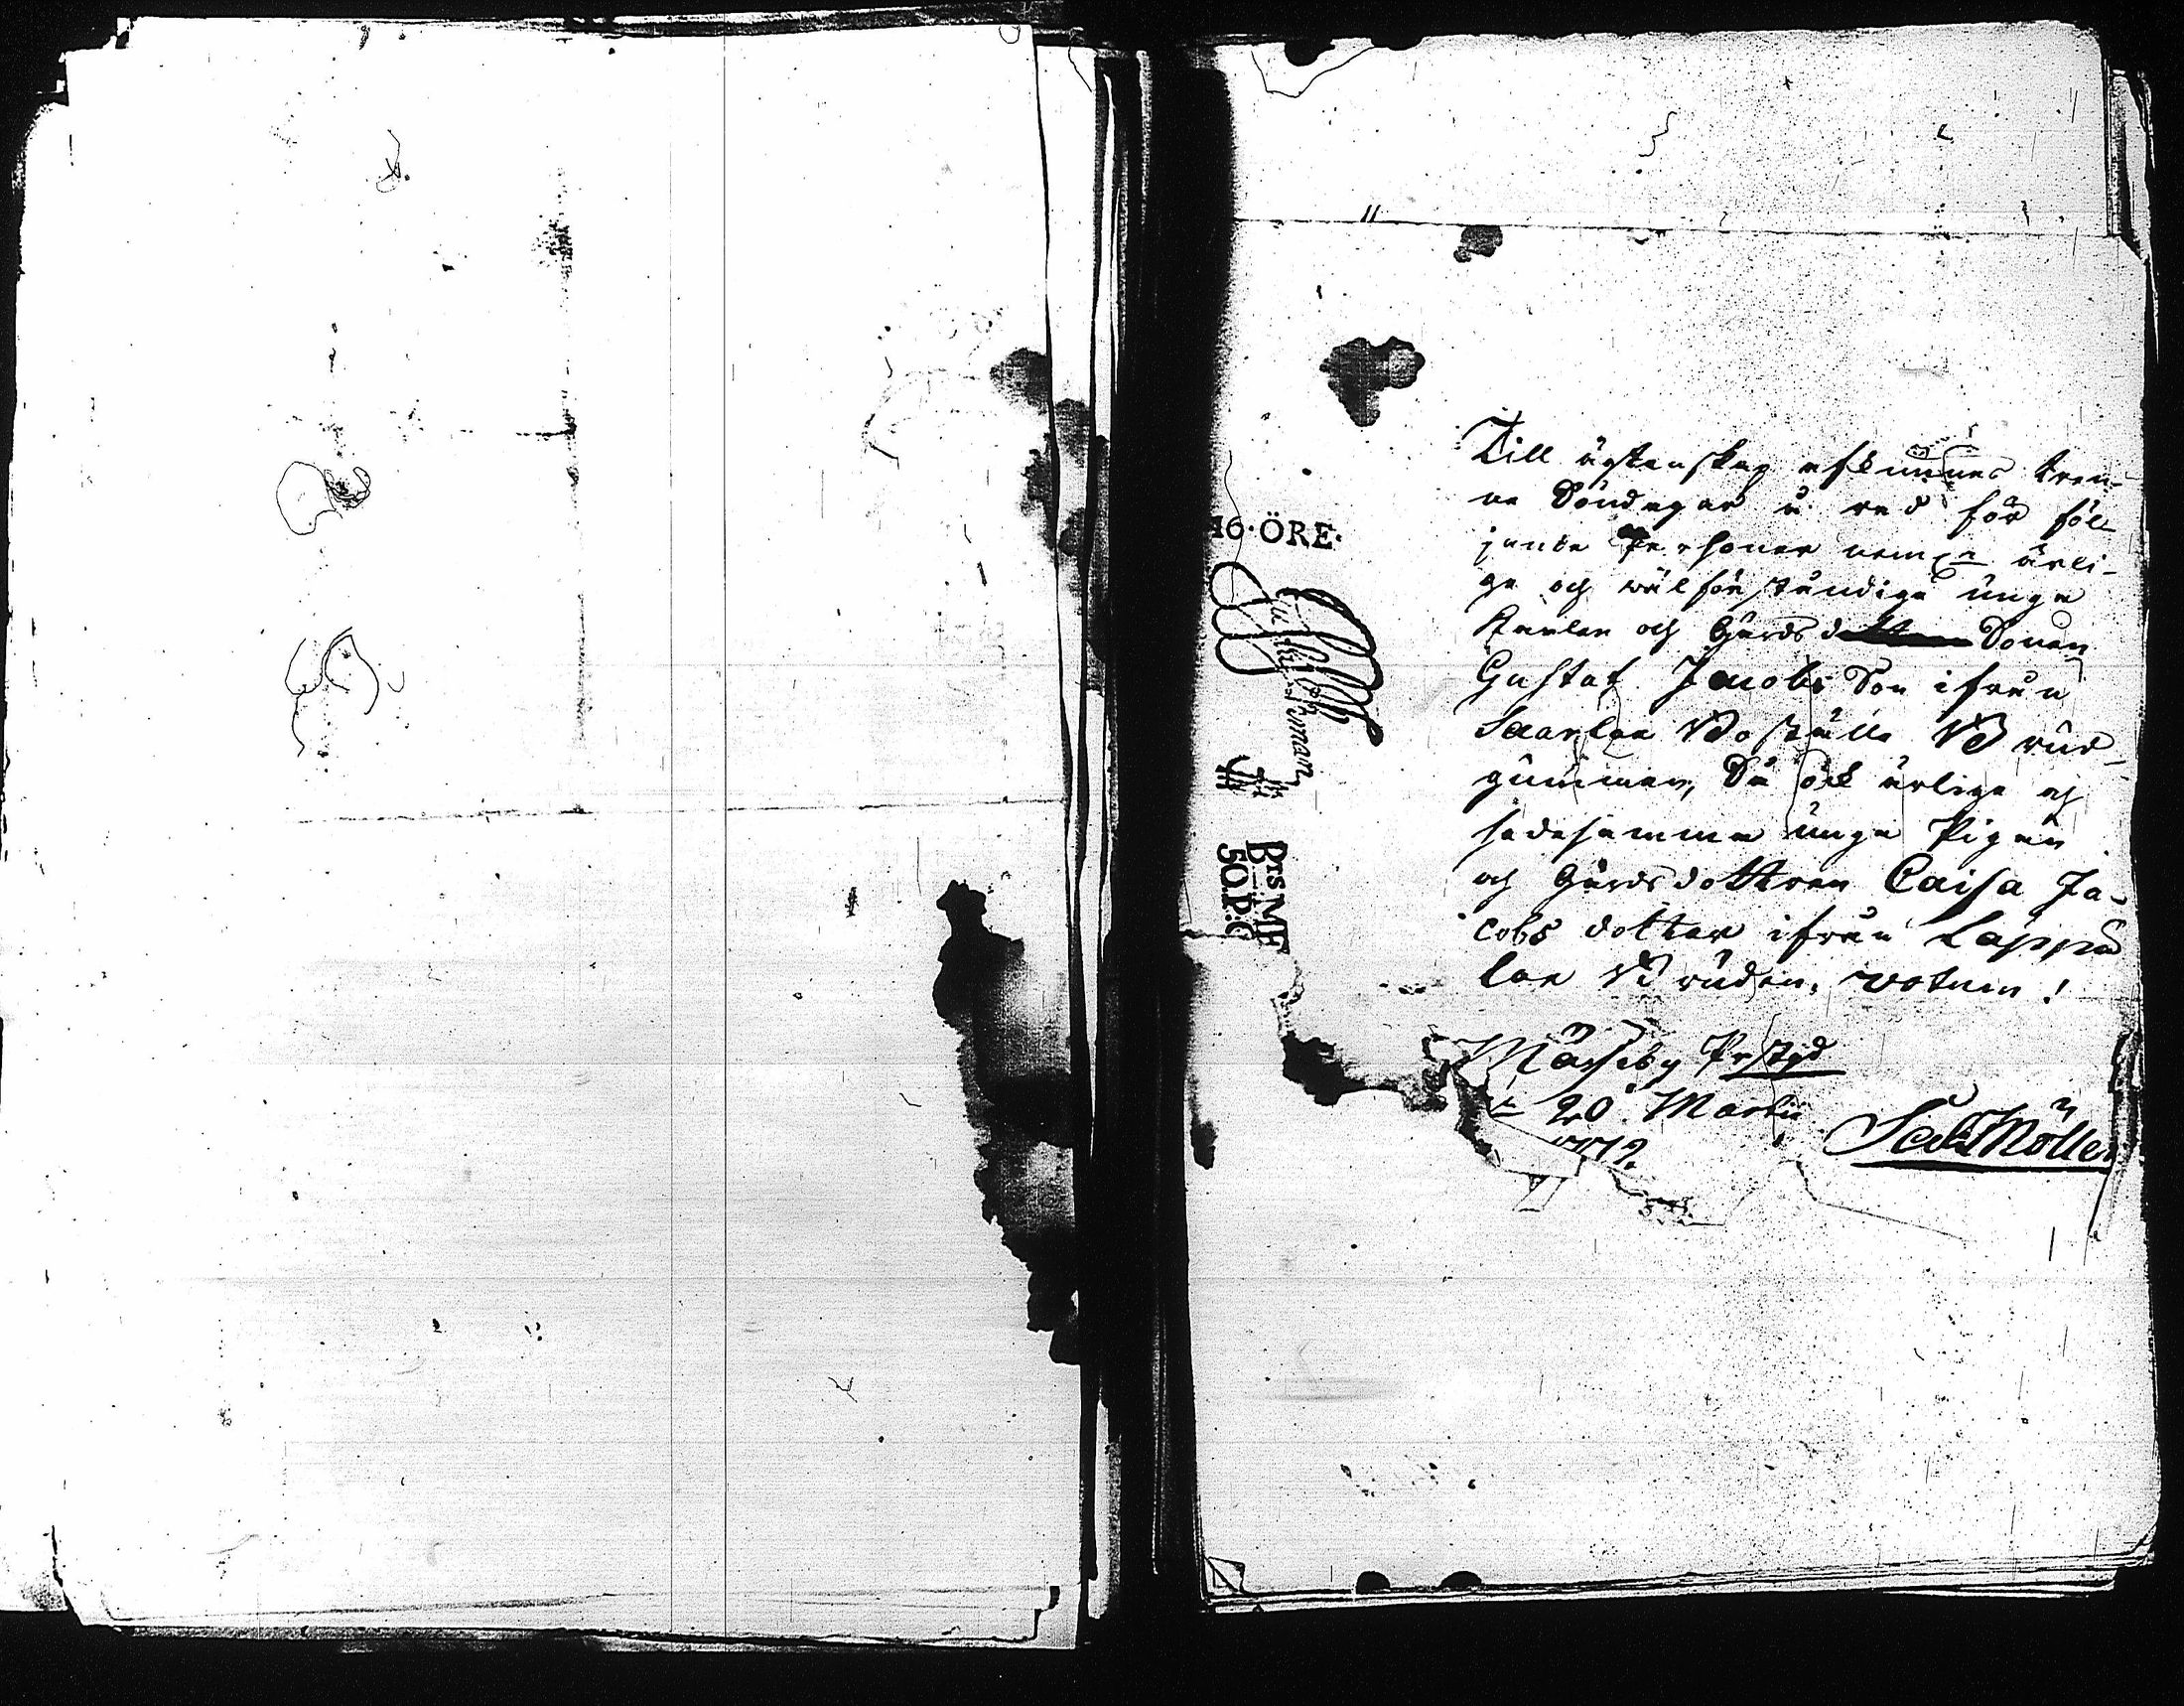 16·ÖRE·
BrsMF
50.P:C
Till ägtenskap afkunnes tren-
ne Söndagar å rad för föl-
jande Personer nemln ärli-
ge och wälförståndige unge
Karlen och Gårds Sonen
Gustaf Jacobs Son ifrån
Saarlax Boställe Brud-
gummen, Så ock ärliga och
sedesamma unga Pigan
och Gårdsdottren Caisa Ja-
cobs dotter ifrån Lappda
lax Bruden. votum!
Måsseby Prstgd
d 20 Martii
1772.
Möller